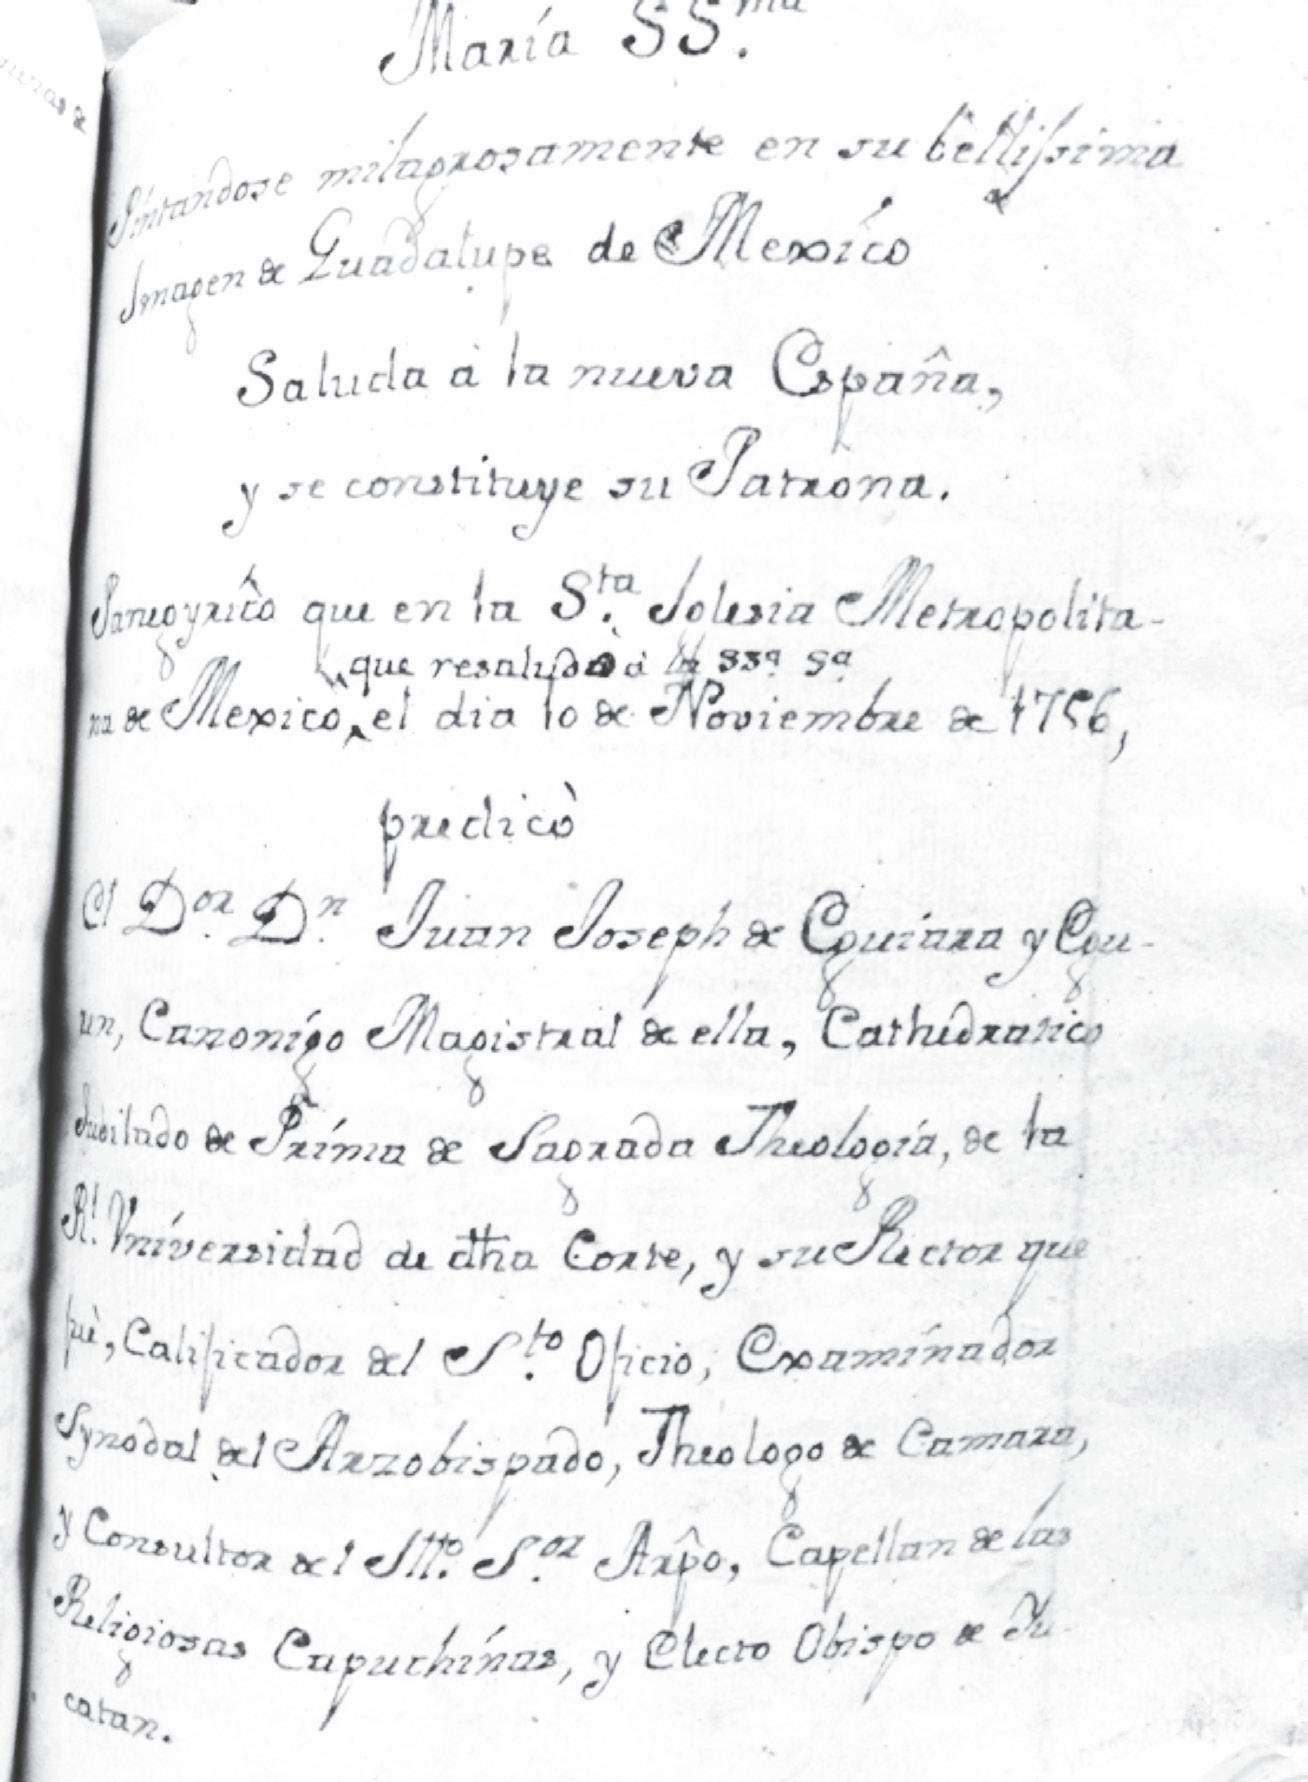 María SS.ma
Pintandose milagrosamente en su bellissima
Imagen de Guadalupe de Mexico
Saluda à la nueva España,
y se constituye su Patrona.
Panegyrico que en la S.ta Iglesia Metropolita-
que resaludò à SSa Sa
na de Mexico, el dia 10 de Noviembre de 1756,
predicò
El D.or D.n Juan Joseph de Eguiara y Egu-
un, Canonigo Magistral de ella, Cathedratico
Jubilado de Príma de Sagrada Theología, de la
Rl. Vniversidad de dha Corte, y su Rector que
fuè, Calificador del S.to Oficio, Examinador
Synodal del Arzobispado, Theologo de Camara,
y Consultor del Illo. S.or Arpo, Capellan de las
Religiosas Capuchinas, y Electo Obispo de Yu-
catan.